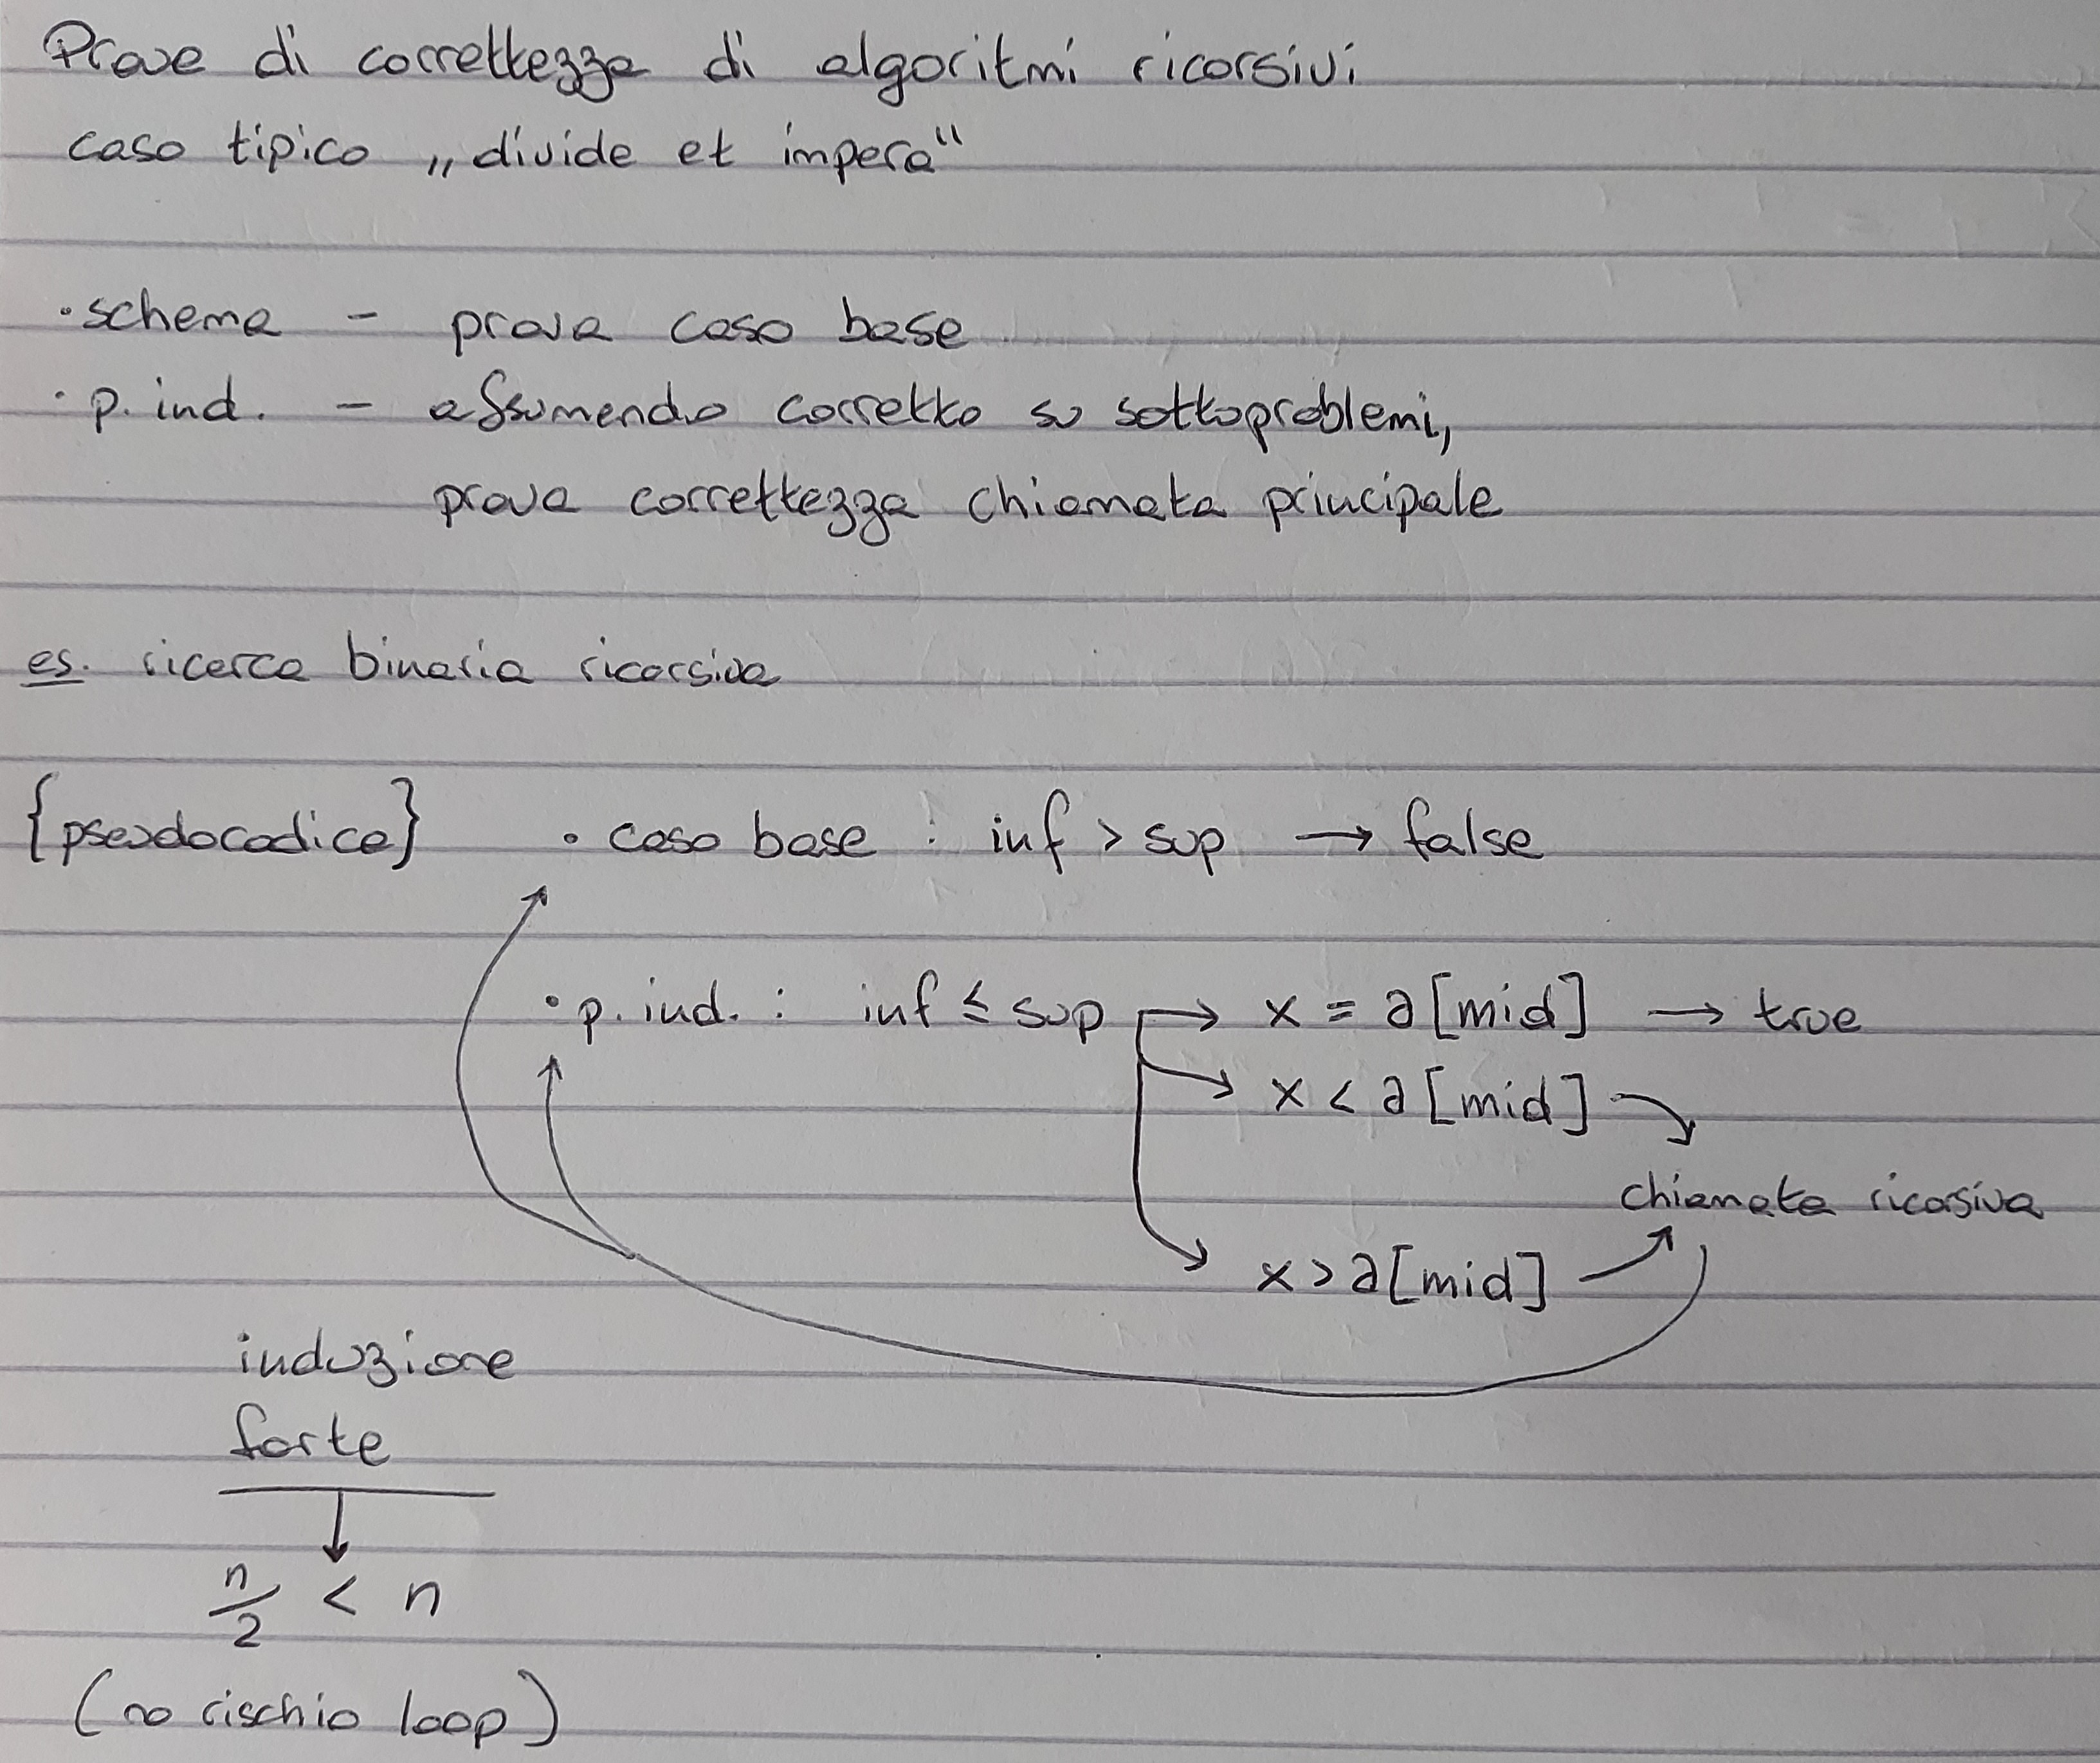 Prove di correttezza di algoritmi ricorsivi
caso tipico „divide et impera“
· schema - prova caso base
· p. ind. - assumendo corretto su sottoproblemi,
prova correttezza chiamata principale
es. ricerca binaria ricorsiva
{pseudocodice} • caso base : inf > sup → false
• p. ind. : inf ≤ sup → x = a[mid] → true
→ x < a[mid]
chiamata ricorsiva
x > a[mid]
induzione
forte
n/2 < n
(no rischio loop)